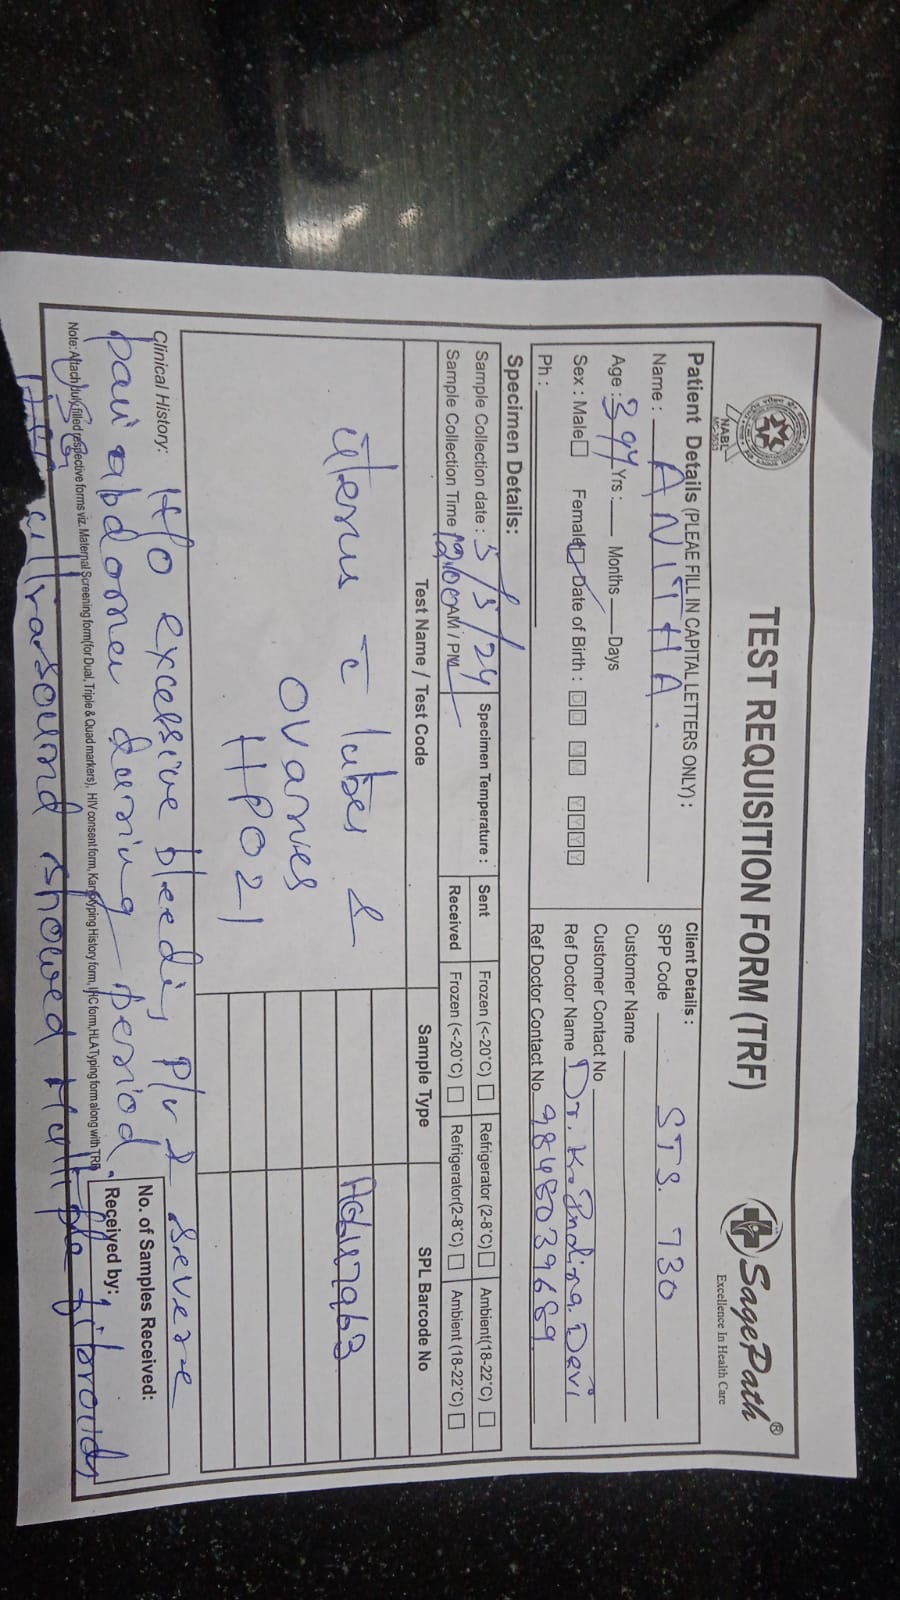 TEST REQUISITION FORM (TRF)
NABL
SagePath®
Excellence In Health Care
Patient Details (PLEAE FILL IN CAPITAL LETTERS ONLY) :
Name : ANITHA.
Age : 39y Yrs : Months Days
Sex : Male Female Date of Birth : DD MM YYYY
Ph :
Client Details :
SPP Code STS. 730
Customer Name
Customer Contact No
Ref Doctor Name Dr. K. Indira Devi
Ref Doctor Contact No 9848039689
Specimen Details:
Sample Collection date : 5/5/24
Sample Collection Time 12:00 AM / PM
Specimen Temperature :
Sent Frozen (<-20°C) Refrigerator (2-8°C) Ambient(18-22°C)
Received Frozen (<-20°C) Refrigerator(2-8°C) Ambient (18-22°C)
Test Name / Test Code Sample Type SPL Barcode No
uterus c tubes &
ovaries
HPO21
Clinical History: H/O excessive bleeding P/V & severe
pain abdomen during period.
Note: Attach duly filled respective forms viz. Maternal Screening form(for Dual, Triple & Quad markers), HIV consent form, Karyotyping History form, IHC form, HLA Typing form along with TRF
No. of Samples Received:
Received by:
ultrasound showed Multiple fibroids